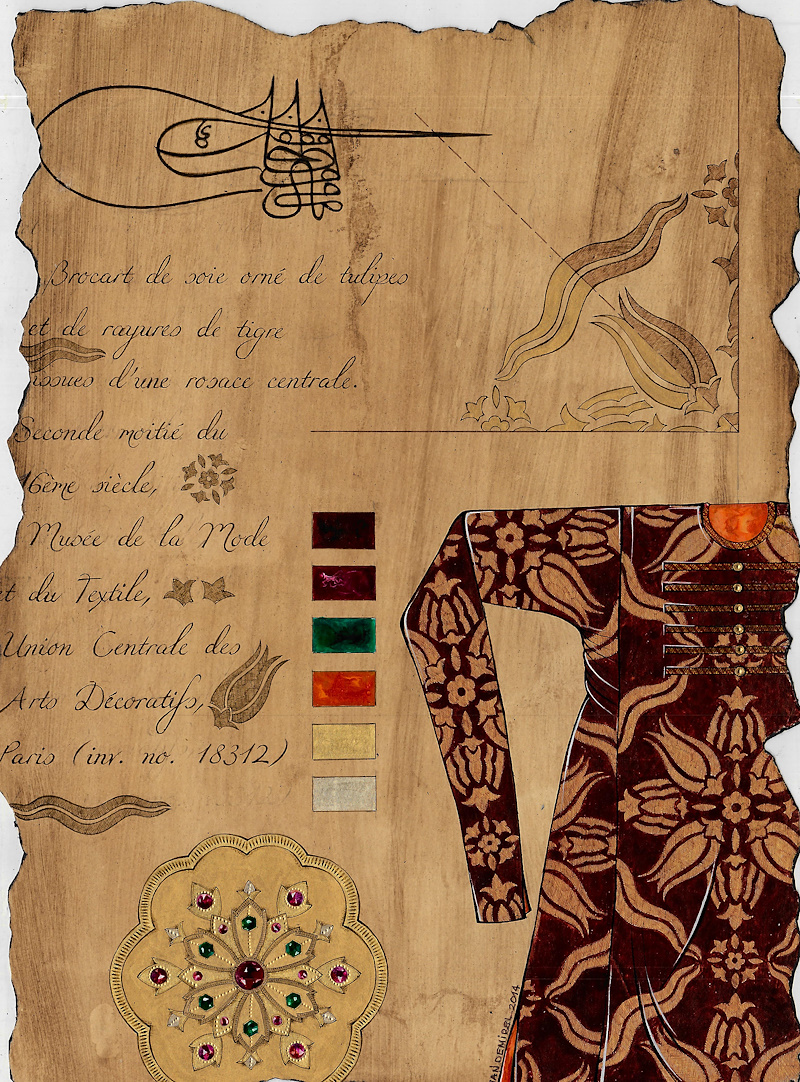 Brocart de soie orné de tulipes
et de rayures de tigre
issues d'une rosace centrale.
Seconde moitié du
16ème siècle,
Musée de la Mode
et du Textile,
Union Centrale des
Arts Décoratifs,
Paris (inv. no. 18312)
DEMİREL 2014